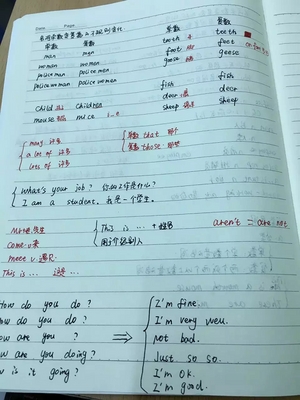 Date Page
单数 复数 单数 复数
man men tooth teeth
woman women foot feet
policeman policemen goose geese
policewoman policewomen fish fish
deer deer
child children sheep sheep
mouse mice
many 许多 单数 that 那个
a lot of 许多 复数 those 那些
lots of 许多
What's your job? 你的工作是什么?
I am a student. 我是一个学生.
Mr 先生 This is ... + 姓名 aren't = are not
Come 来
meet v. 遇见
This is ... 这是...
How do you do? I'm fine.
How do you do? I'm very well.
How are you? ⇒ Not bad.
How are you doing? Just so so.
How is it going? I'm OK.
I'm good.